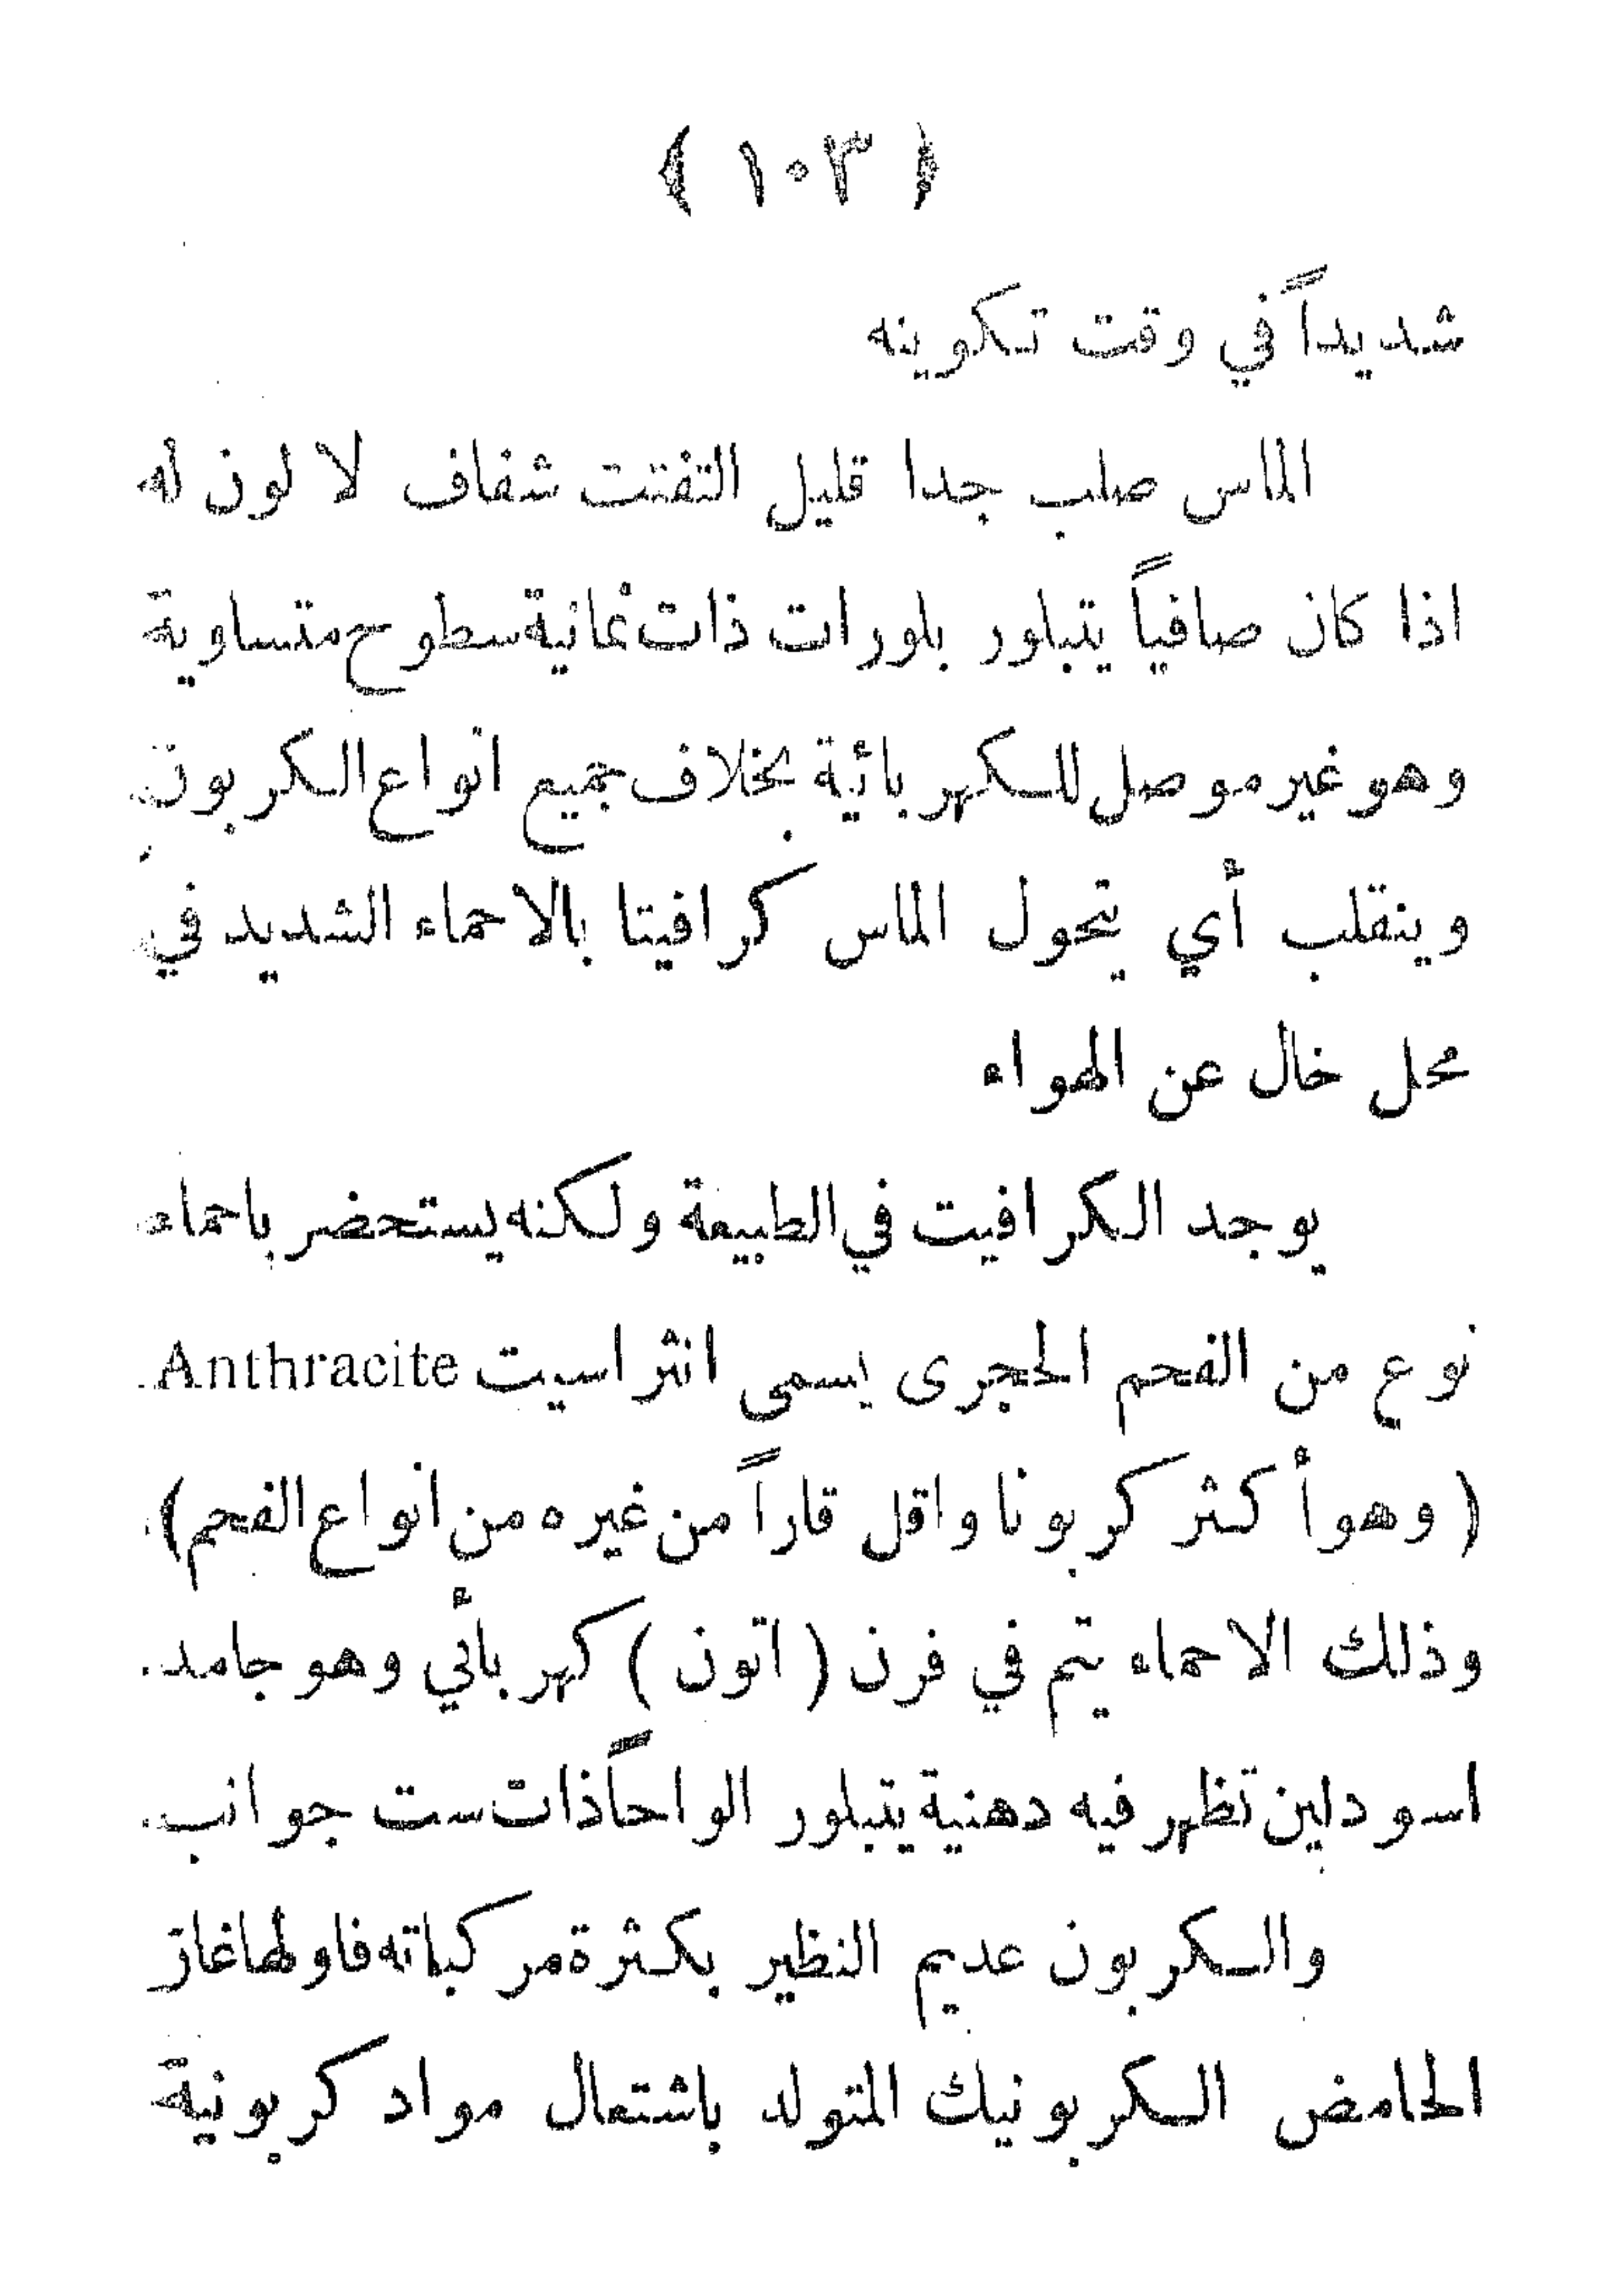 ﴿ ١٠٣ ﴾
شديداً في وقت تكوينه
الماس صلب جدا قليل التفتت شفاف لا لون له
اذا كان صافياً يتبلور بلورات ذات ثمانية سطوح متساوية
وهو غير موصل للكهربائية بخلاف جميع انواع الكربون
وينقلب أي يتحول الماس كرافيتا بالاحماء الشديد في
محل خال عن الهواء
يوجد الكرافيت في الطبيعة ولكنه يستحضر باحماء
نوع من الفحم الحجرى يسمى انثراسيت Anthracite
( وهو أكثر كربونا واقل قاراً من غيره من انواع الفحم )
وذلك الاحماء يتم في فرن ( اتون ) كهربائي وهو جامد
اسود لين تظهر فيه دهنية يتبلور الواحاً ذات ست جوانب
والكربون عديم النظير بكثرة مركباته فاولها غاز
الحامض الكربونيك المتولد باشتعال مواد كربونية